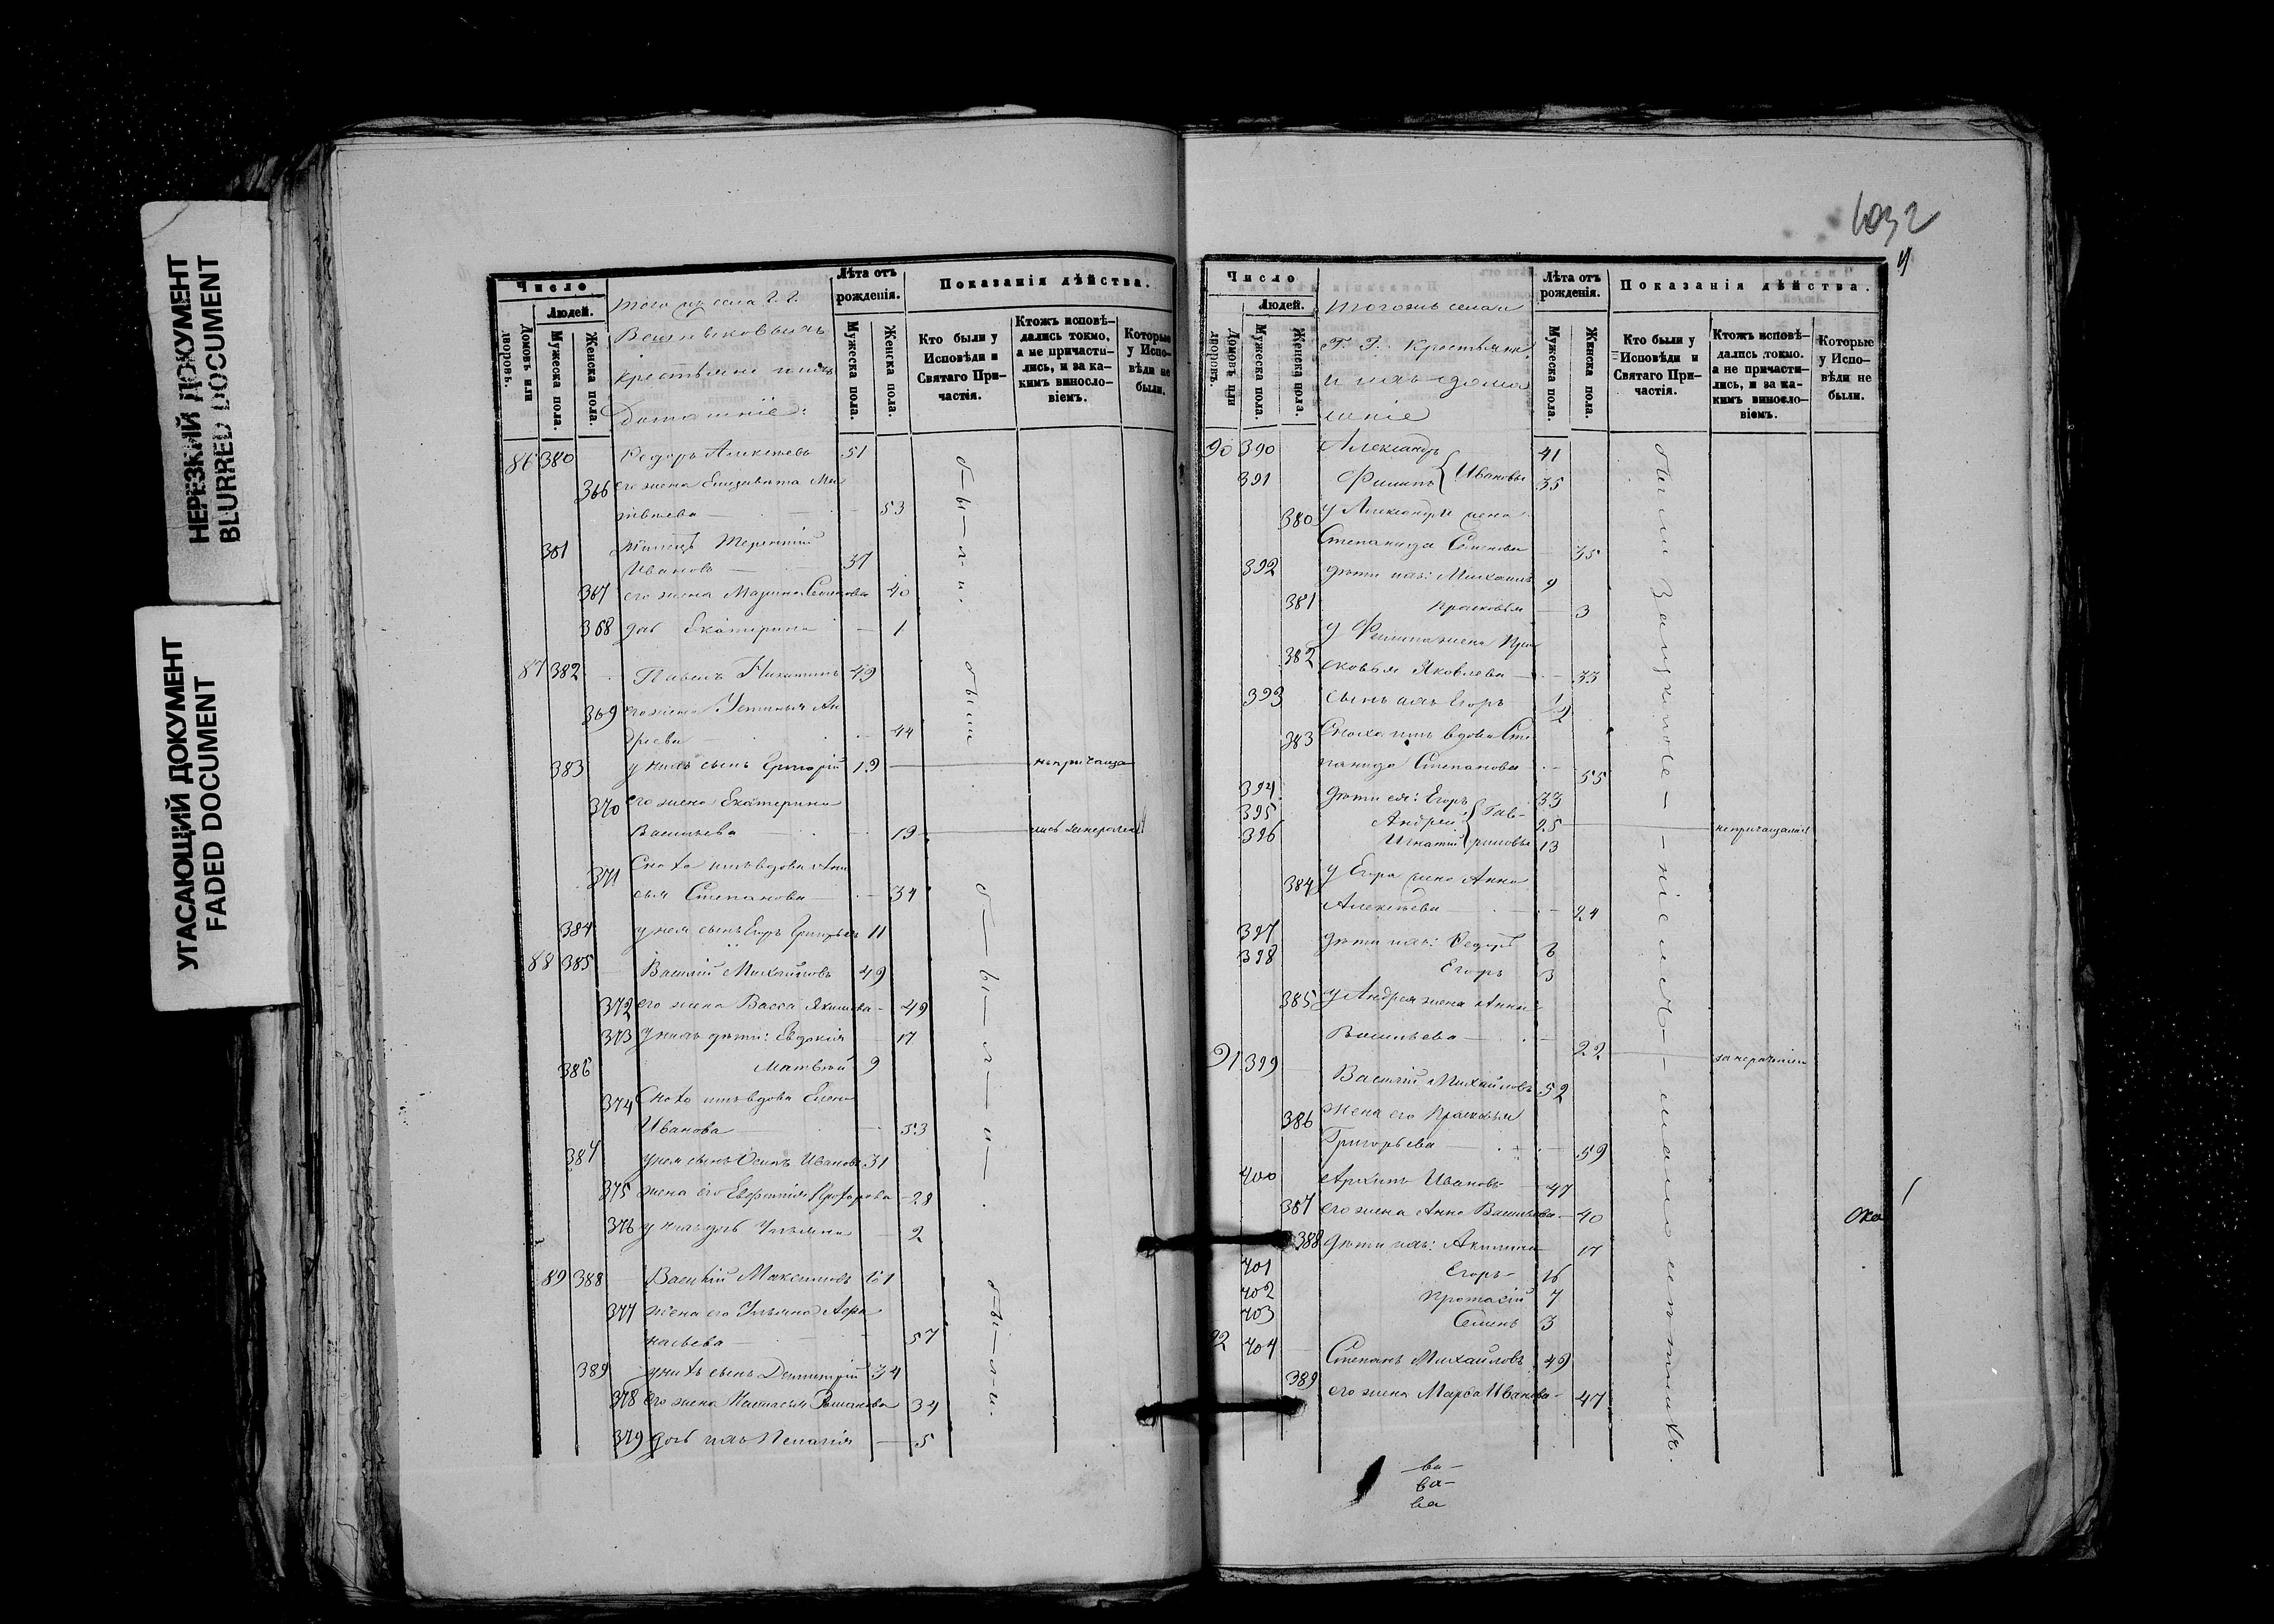 НЕРЕЗКИЙ ДОКУМЕНТ
BLURRED DOCUMENT
УГАСАЮЩИЙ ДОКУМЕНТ
FADED DOCUMENT
Число
Домовъ или дворовъ.
Людей.
Мужеска пола.
Женска пола.
того жъ села Г. Г.
крестьяне и ихъ
Домашніе:
Лѣта отъ рожденія.
Мужеска пола.
Женска пола.
Показанія дѣйства.
Кто были у Исповѣди и Святаго Причастія.
Ктожъ исповѣдались токмо, а не причастились, и за какимъ винословіемъ.
Которые у Исповѣди не были.
86 380 Ѳедоръ Алексѣевъ 51
366 его жена Елизавета Мат
вѣева 53
381 Терентій
Ивановъ 37
367 его жена Марина Семенова 40
368 дочь Екатерина 1
были.
87 382 Павелъ Никитинъ 49
369 его жена Устинья Ан
дреева 44
были
383 у нихъ сынъ Григорій 19 непричаща
370 его жена Екатерина
Васильева 19 лись
371 Сноха ихъ вдова Ани
сья Степанова 34
384 у нея сынъ Егоръ Григорьевъ 11
88 385 Василій Михайловъ 49
372 его жена Васса Якимова 49
373 у нихъ дѣти: Евдокія 17
386 Матвѣй 9
374 Сноха ихъ вдова Елена
Иванова 53
387 у нея сынъ Осипъ Ивановъ 31
375 жена его Евфимія Прохорова 28
376 у нихъ дочь Ульяна 2
были.
89 388 Василій Максимовъ 61
377 жена его Ульяна Аѳа
насьева 57
389 у нихъ сынъ Димитрій 34
378 его жена Настасья Романова 34
379 дочь ихъ Пелагія 5
были.
1032
Число
Домовъ или дворовъ.
Людей.
Мужеска пола.
Женска пола.
Тогожъ села
Г. Г. Крестьяне
и ихъ дома
шніе
Лѣта отъ рожденія.
Мужеска пола.
Женска пола.
Показанія дѣйства.
Кто были у Исповѣди и Святаго Причастія.
Ктожъ исповѣдались токмо. а не причастились, и за какимъ винословіемъ.
Которые у Исповѣди не были.
90 390 Александръ 41
391 Филипъ Ивановы 35
380 у Александра жена
Степанида Семенова 35
392 дѣти ихъ: Михаилъ 9
381 Прасковья 3
у Филипа жена Пра
382 сковья Яковлева 33
393 сынъ ихъ Егоръ 1/2
383 Сноха ихъ вдова Сте
панида Степанова 55
394 дѣти ея: Егоръ 33
395 Андрей Гав- 25 непричащались
396 Игнатій риловы 13
384 у Егора жена Анна
Алексѣева 24
397 дѣти ихъ: Ѳедоръ 6
398 Егоръ 3
385 у Андрея жена Анна
Васильева 22
91 399 Василій Михайловъ 52
386 жена его Прасковья
Григорьева 59
400 Архипъ Ивановъ 47
387 его жена Анна Васильева 40
388 дѣти ихъ: Акилина 17
401 Егоръ 16
402 Протасій 7
403 Семенъ 3
92 404 Степанъ Михайловъ 49
389 его жена Марѳа Иванова 47
были
ва
ва
ва